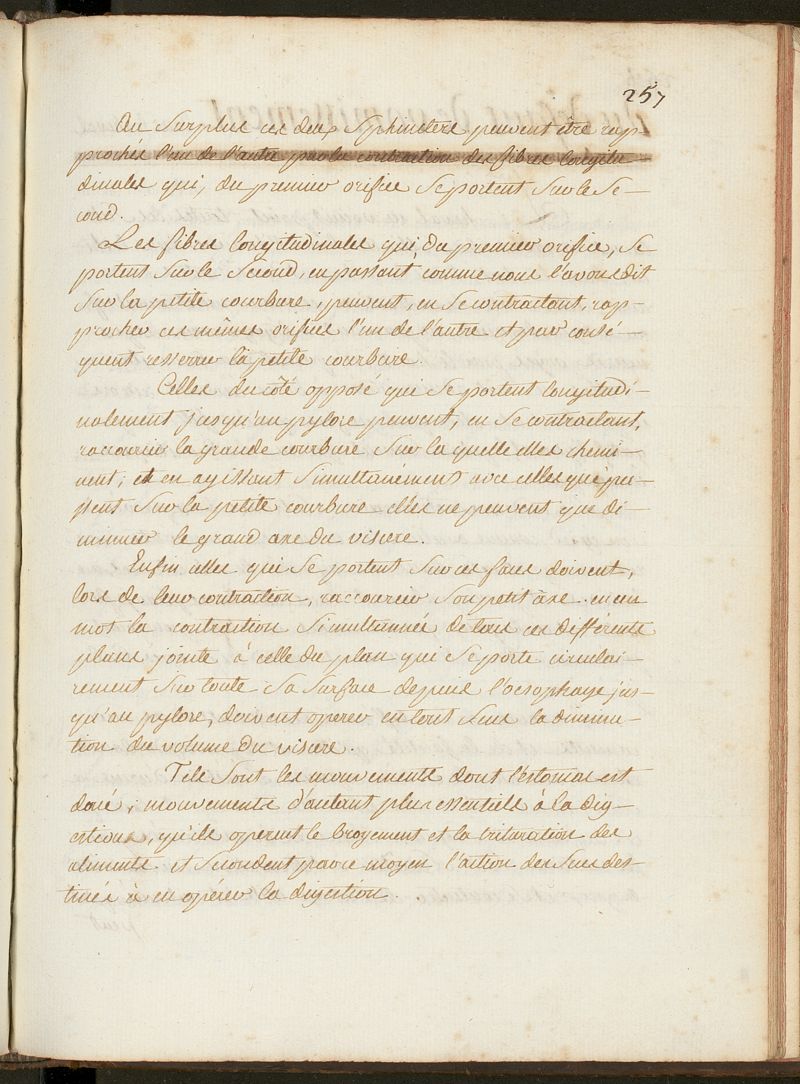 257
Au Surplus ces deux Sphincters peuvent être rap-
prochés l'un de l'autre par la contraction des fibres longitu
dinales qui, du premier orifice Se portent Sur le Se-
cond.
Les fibres longitudinales qui, du premier orifice, Se
portent Sur le Second, en passant, comme nous l'avons dit
Sur la petite courbure, peuvent, en Se contractant, rap-
procher ces mêmes orifices l'un de l'autre et par consé-
quent resserrer la petite courbure.
Celles du côté opposé qui Se portent longitudi-
nalement jusqu'au pylore peuvent, en Se contractant,
raccourcir la grande courbure Sur la quelle elles chemi-
nent; et en agissant Simultanément avec celles qui pas-
sent Sur la petite courbure elles ne peuvent que di-
minuer le grand axe du viscere.
Enfin celles qui Se portent Sur ces faces doivent,
lors de leur contraction, raccourcir Son petit axe. en un
mot la contraction Simultannée de tous ces différents
plans jointe à celle du plan qui Se porte circulai-
rement Sur toute Sa Surface depuis l'oesophage jus-
qu'au pylore, doivent operer en tout Sens la diminu-
tion du volume du viscere.
Tels Sont les mouvements dont l'estomac est
doué; mouvements d'autant plus essentiels à la dig-
estion, qu'ils operent le broyement et la trituration des
aliments et Secondent par ce moyen l'action des Sucs des-
tinés à en opérer la digestion.